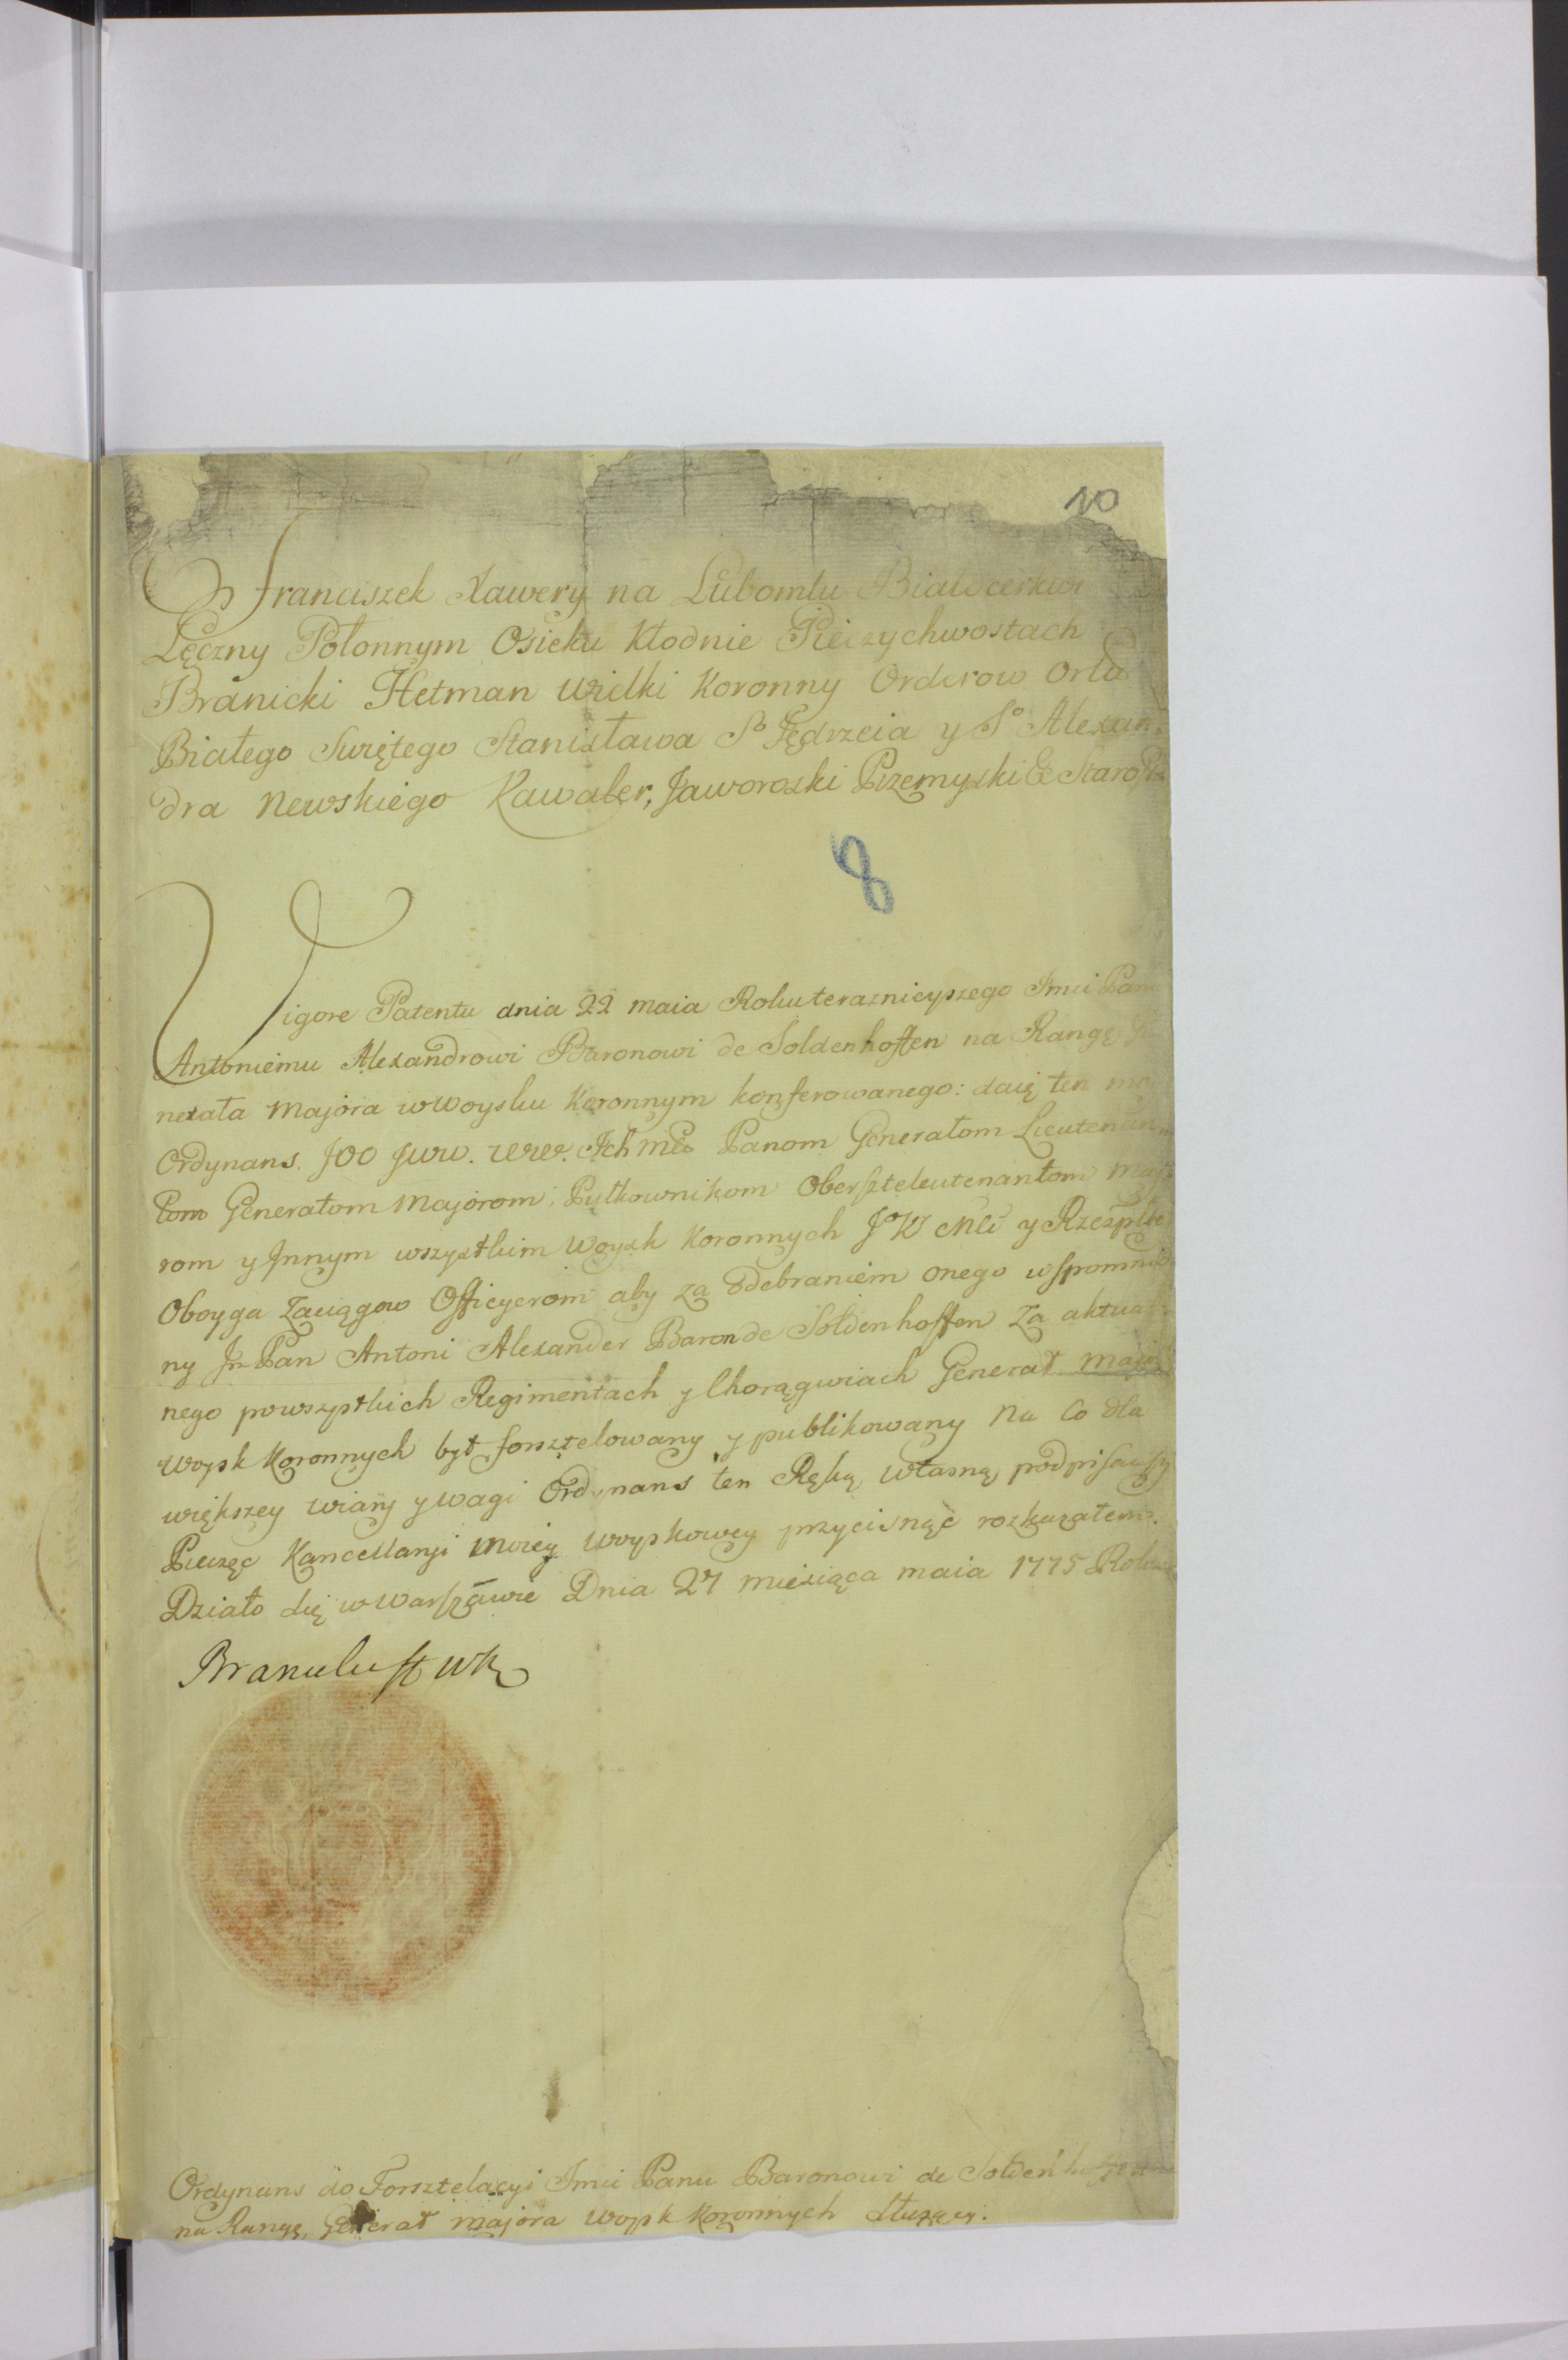 10
Franciszek Xawery na Lubomlu Białocerkwi
Lęczny Połonnym Osieku Kłodnie Pieczychwostach
Branicki Hetman Wielki Koronny Orderow Orła
Białego Swiętego Stanisława So Jędrzeia y So Alexan
dra Newskiego Kawaler, Jaworoski Przemyski &c Starosta
8
Vigore Patentu dnia 22 maia Roku teraznieyszego Imci Panu
Antoniemu Alexandrowi Baronowi de Soldenhoffen na Rangę
nerała Majora w Woysku Koronnym konferowanego: daię ten moy
Ordynans. JOO Juw. WW. Ich Mć Panom Generałom Lieutenan
tom Generałom Majorom, Pułkownikom Oberszteleutenantom Majo
rom y Innym wszystkim Woysk Koronnych JoK Mci y Rzeszpltey
Oboyga Zaciągow Officyerom aby za odebraniem onego wspomnio
ny Jn Pan Antoni Alexander Baron de Soldenhoffen Za aktual
nego powszystkich Regimentach y Chorągwiach Generał Major
Woysk Koronnych był forsztelowany y publikowany Na Co dla
większey wiary y wagi Ordynans ten Ręką własną podpisawszy
Pieczęc Kancellaryi Moiey Woyskowey przycisnąc rozkazałem.
Działo się w Warszawie Dnia 27 miesiąca maia 1775 Roku
Branicki H W K
Ordynans do Forsztelacyi Imci Panu Baronowi de Soldenhoffen
na Rangę, Generał majora Woysk Koronnych Służący.